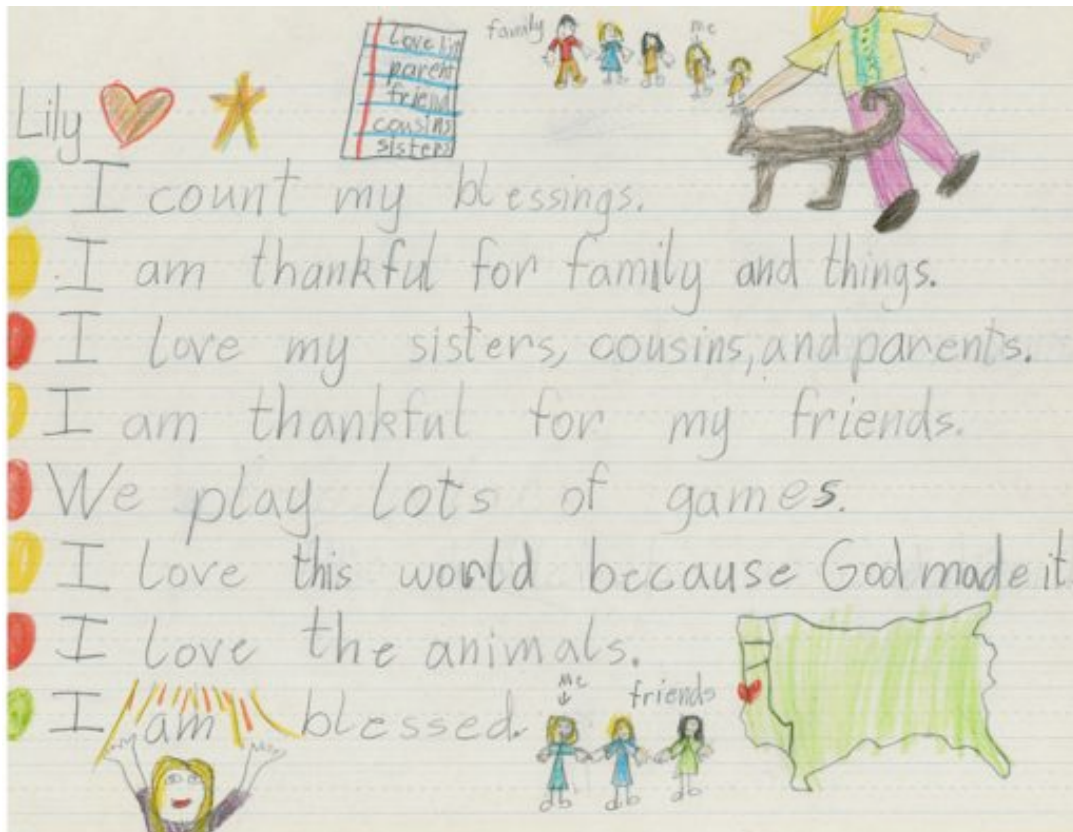 family
me
Love
parent
friend
cousins
sisters
Lily
I count my blessings.
I am thankful for family and things.
I love my sisters, cousins, and parents.
I am thankful for my friends.
We play lots of games.
I love this world because God made it
I love the animals.
I am blessed.
me
friends